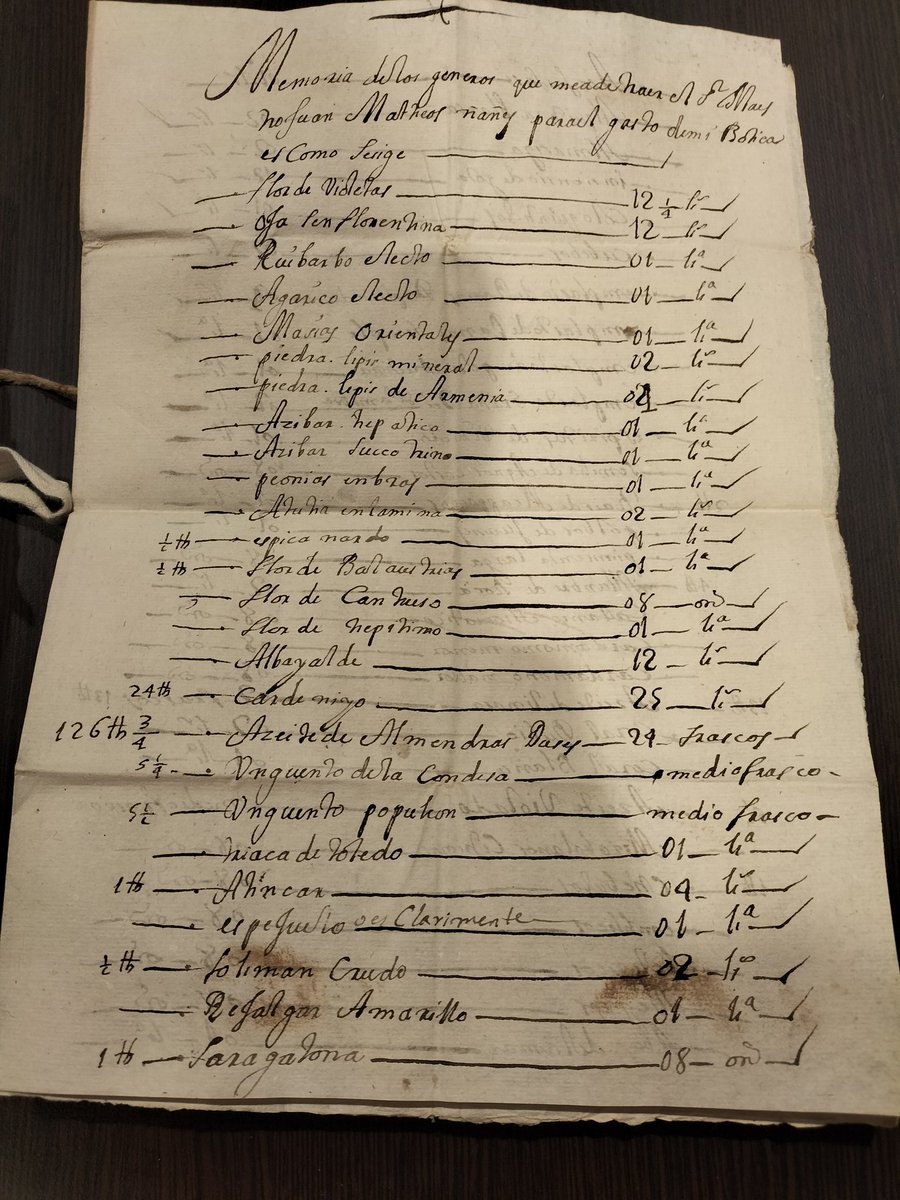 Memoria de los generos que meade traer el Sr Maes
tro Juan Matheos ñañes parael gasto demi Botica
es Como se sige
flor de Violetas 12 1/4 ls
Oja sen florentina 12 ls
Ruibarbo electo 01 lia
Agarico electo 01 lia
Masias Orientales 01 lia
piedra lipis mineral 02 ls
piedra lipis de Armenia ls
Azibar hepatico 01 lia
Azibar succotrino 01 lia
peonias enbras 01 lia
Atutia enlamina 02 ls
1/2 th espica nardo 01 lia
1/2 th flor de Balaustrias 01 lia
flor de Cantueso 08 on
flor de hepitimo 01 lia
Albayalde 12 ls
24 th Cardenigo 25 ls
126 th 3/4 Azeite de Almendras Dases 24 frascos
5 1/4 Vnguento dela Condesa medio frasco
5 1/2 Vnguento populeon medio frasco
triaca de toledo 01 lia
1 th Atincar 04 ls
espejuelo o es Clarimente 01 lia
1/2 th Soliman Crudo 02 lis
Rejalgar Amarillo 01 lia
1 th Saragatona 08 on